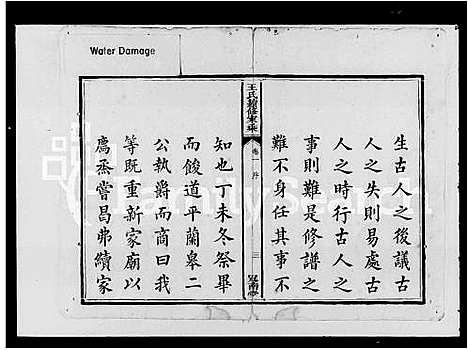 Water Damage
生古人之後議古
人之失則易處古
人之時行古人之
事則難是修譜之
難不身任其事不
王氏續修家乘
卷一
序
三
知也丁未冬祭畢
而餕道平蘭皋二
公執爵而商曰我
等既重新家廟以
薦烝嘗昌弗續家
FamilySearch